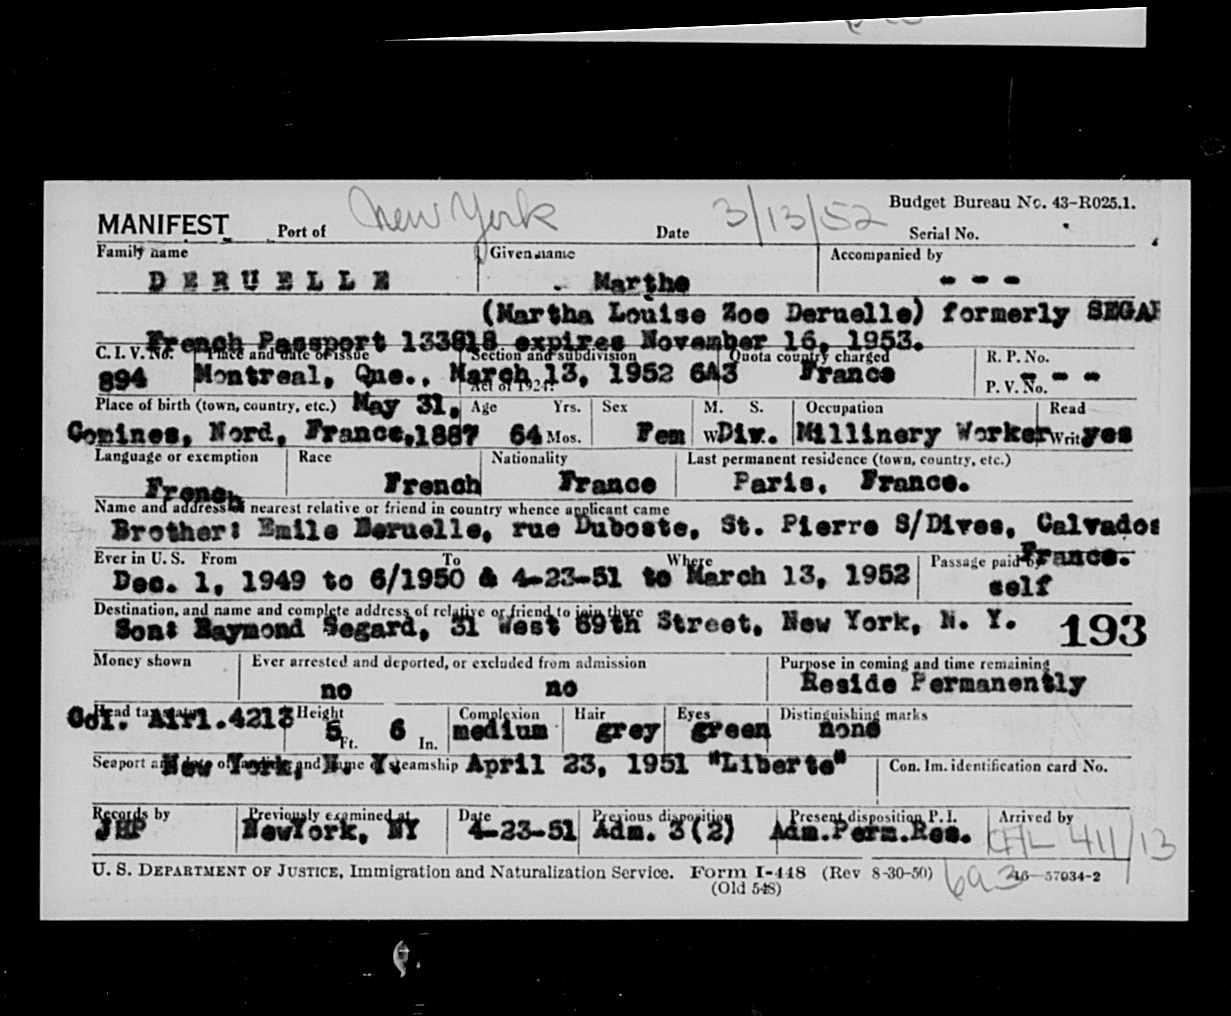 Budget Bureau No. 43-R025.1.
MANIFEST Port of New York Date 3/13/52 Serial No.
Family name Given name Accompanied by
DERUELLE Marthe - - -
(Martha Louise Zoe Deruelle) formerly SEGAR
French Passport 133818 expires November 16, 1953.
C. I. V. No. Place and date of issue Section and subdivision Quota country charged R. P. No.
894 Montreal, Que., March 13, 1952 6A3 France - - -
Act of 1924. P. V. No.
Place of birth (town, country, etc.) May 31, Age Yrs. Sex M. S. Occupation Read
Comines, Nord, France, 1887 64 Mos. Fem W. Div. Millinery Worker Write yes
Language or exemption Race Nationality Last permanent residence (town, country, etc.)
French French France Paris, France.
Name and address of nearest relative or friend in country whence applicant came
Brother: Emile Deruelle, rue Duboste, St. Pierre S/Dives, Calvados
Ever in U. S. From To Where Passage paid by France.
Dec. 1, 1949 to 6/1950 & 4-23-51 to March 13, 1952 self
Destination, and name and complete address of relative or friend to join there
Son: Raymond Segard, 31 West 69th Street, New York, N. Y. 193
Money shown Ever arrested and deported, or excluded from admission Purpose in coming and time remaining
no no Reside Permanently
Head tax status Height Complexion Hair Eyes Distinguishing marks
Col. Airl. 4213 5 Ft. 6 In. medium grey green none
Seaport and date of landing and name of steamship Con. Im. identification card No.
New York, N. Y. April 23, 1951 "Liberte"
Records by Previously examined at Date Previous disposition Present disposition P. I. Arrived by
JHP NewYork, NY 4-23-51 Adm. 3(2) Adm.Perm.Res. CAL 411/13
U. S. DEPARTMENT OF JUSTICE, Immigration and Naturalization Service. Form I-448 (Rev 8-30-50) 6a3 16—57034-2
(Old 548)